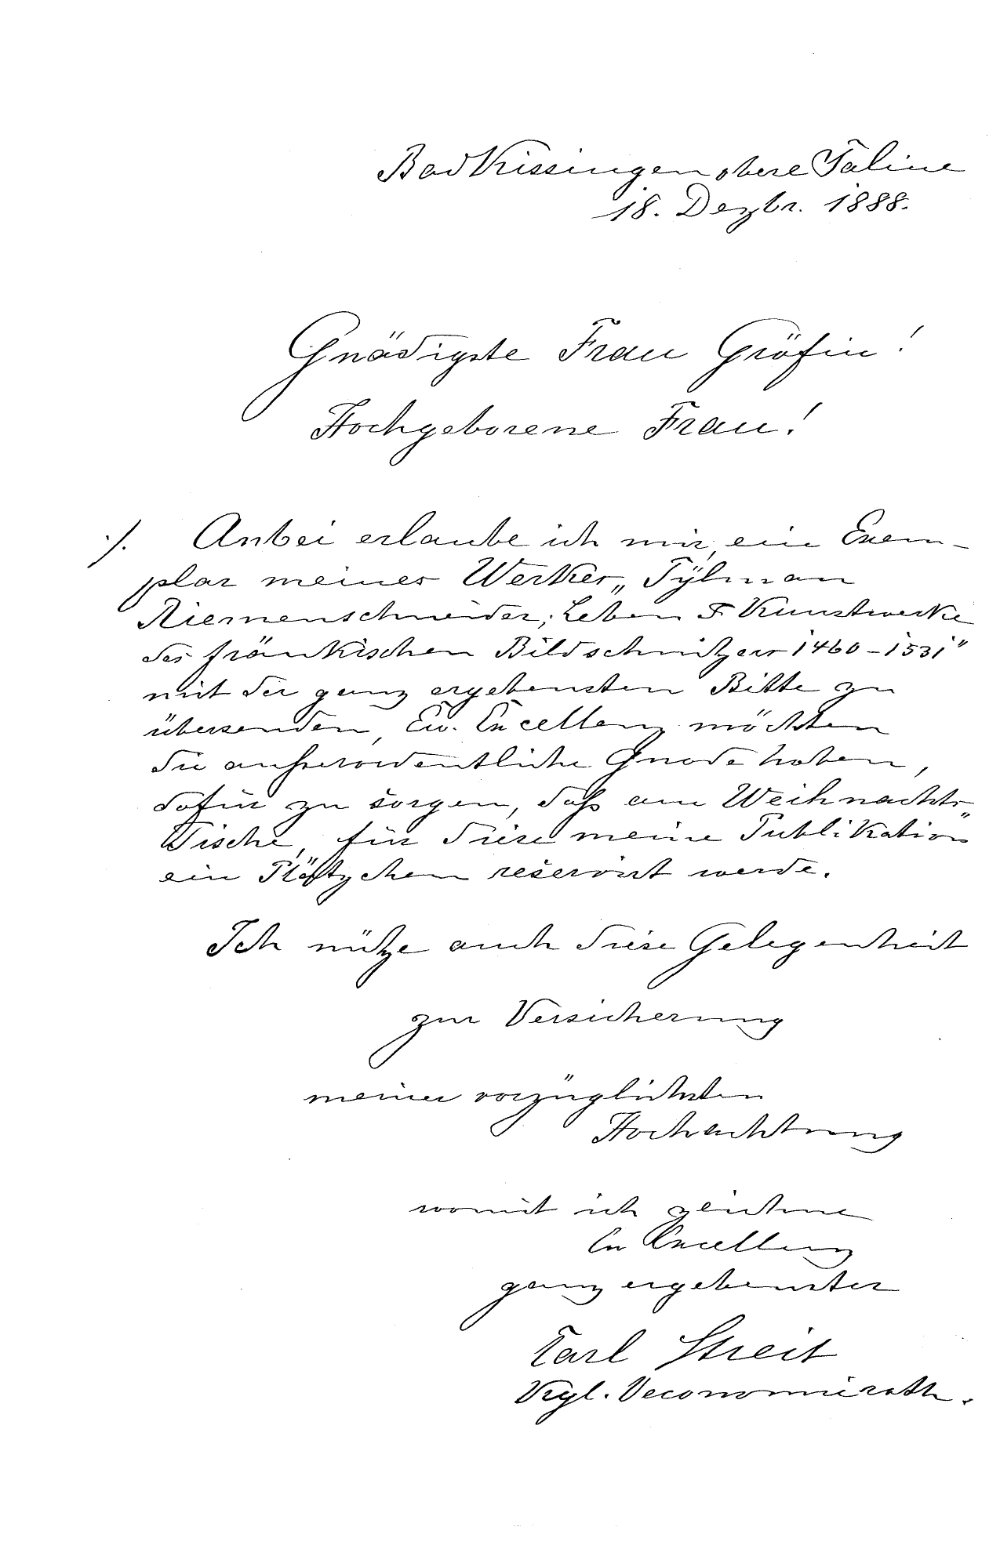 Bad Kissingen obere Saline
18. Dezbr. 1888.
Gnädigste Frau Gräfin!
Hochgeborene Frau!
./. Anbei erlaube ich mir, ein Exem-
plar meines Werkes „Tylman
Riemenschneider, Leben & Kunstwerke
des fränkischen Bildschnitzers 1460-1531"
mit der ganz ergebensten Bitte zu
übersenden, Ew. Excellenz möchten
die außerordentliche Gnade haben,
dafür zu sorgen, daß am Weihnachts-
Tische, für diese meine Publikation
ein Plätzchen reservirt werde.
Ich nütze auch diese Gelegenheit
zur Versicherung
meiner vorzüglichsten
Hochachtung
womit ich zeichne
Ew Excellenz
ganz ergebenster
Carl Streit
Kgl. Oeconomierath.